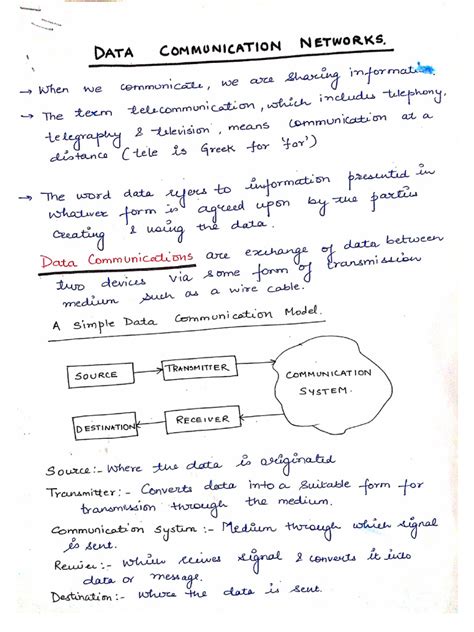 DATA COMMUNICATION NETWORKS.
→ When we communicate, we are sharing information
→ The term telecommunication, which includes telephony,
telegraphy & television, means communication at a
distance (tele is Greek for 'far')
→ The word data refers to information presented in
whatever form is agreed upon by the parties
creating & using the data.
Data Communications are exchange of data between
two devices via some form of transmission
medium such as a wire cable.
A Simple Data Communication Model.
SOURCE
TRANSMITTER
COMMUNICATION
SYSTEM.
DESTINATION
RECEIVER
Source:- Where the data is originated
Transmitter:- Converts data into a suitable form for
transmission through the medium.
Communication System:- Medium through which signal
is sent.
Receiver:- Which receives signal & converts it into
data or message.
Destination:- Where the data is sent.